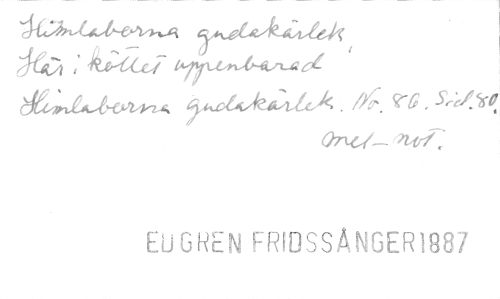 Himlaborna gudakärlek,
Här i köttet uppenbarad
Himlaborna gudakärlek. No. 86. Sid. 80.
mel-not.
EUGREN FRIDSSÅNGER 1887